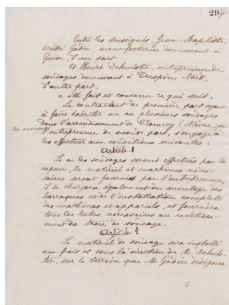 29
Entre les soussignés, Jean-Baptiste
André Godin manufacturier demeurant à
Guise, d'une part,
Et Henri Schulotte, entrepreneur de
sondages demeurant à Nord
d'autre part,
a été fait et convenu ce qui suit.
Le contractant de première part ayant
à faire exécuter un ou plusieurs sondages
dans l'arrondissement de
l'entrepreneur de seconde part, s'engage à
les effectuer aux conditions suivantes.
Article 1
Le ou les sondages seront effectués par la
vapeur, le matériel et machines néces-
saires seront fournis par l'entrepreneur,
il se chargera également du montage des
baraques et de l'installation complète
des machines et appareils, et fournira
tous les tubes nécessaires au revêtement
du trou de sondage.
Article 2
Le matériel de sondage sera installé
aux frais et sous la direction de M. Schulot-
te, sur le terrain que M. Godin désignera